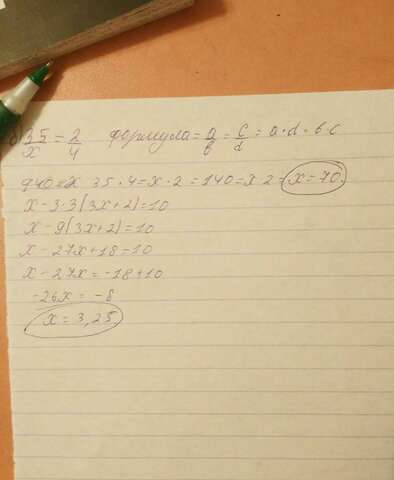 35/x = 2/4 формула = a/b = c/d = a·d = b·c
35·4=x·2=140=x·2= x=70.
x-3·3(3x+2)=10
x-9(3x+2)=10
x-27x+18=10
x-27x=-18+10
-26x=-8
x=3,25